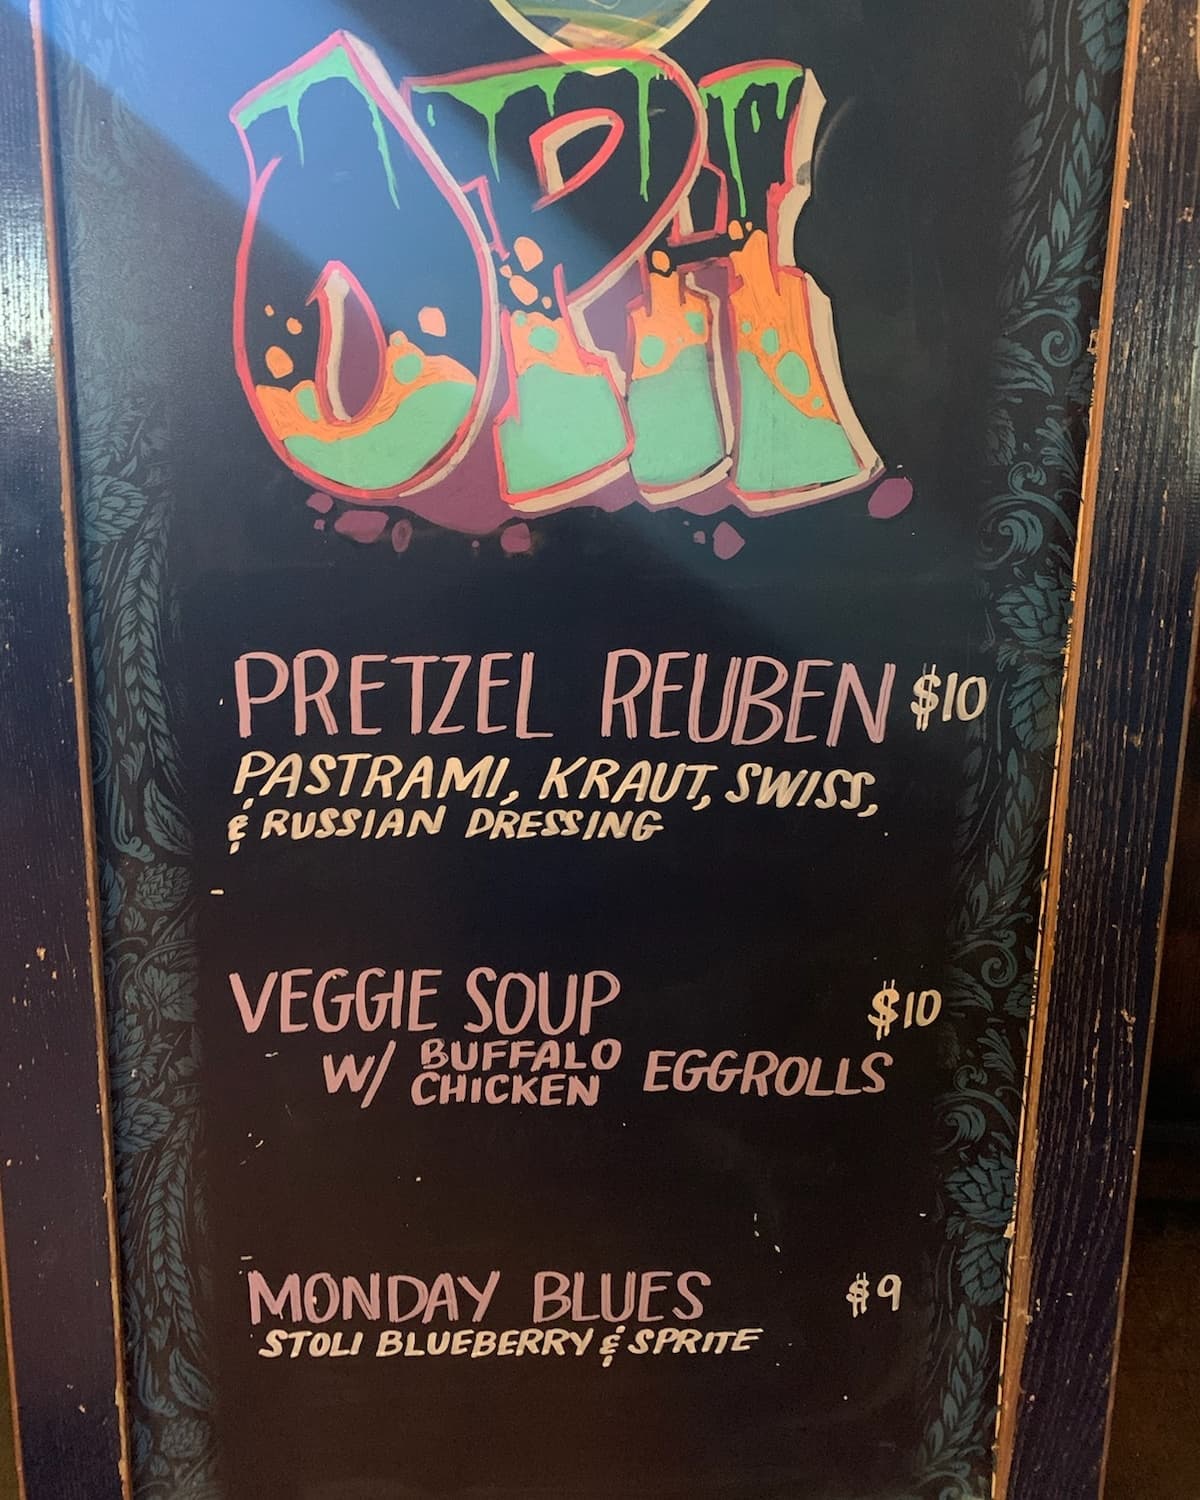 OPH
PRETZEL REUBEN $10
PASTRAMI, KRAUT, SWISS,
& RUSSIAN DRESSING
VEGGIE SOUP $10
W/ BUFFALO CHICKEN EGGROLLS
MONDAY BLUES $9
STOLI BLUEBERRY & SPRITE